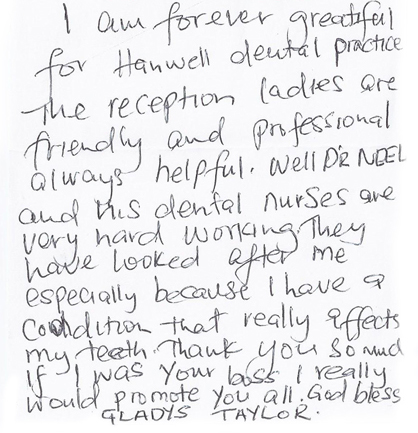 I am forever greatful
for Hanwell dental practice
The reception ladies are
friendly and professional
always helpful. Well D'R NEEL
and his dental nurses are
very hard working. They
have looked after me
especially because I have a
condition that really affects
my teeth. Thank you so much
If I was your boss I really
would promote you all. God bless
GLADYS TAYLOR.